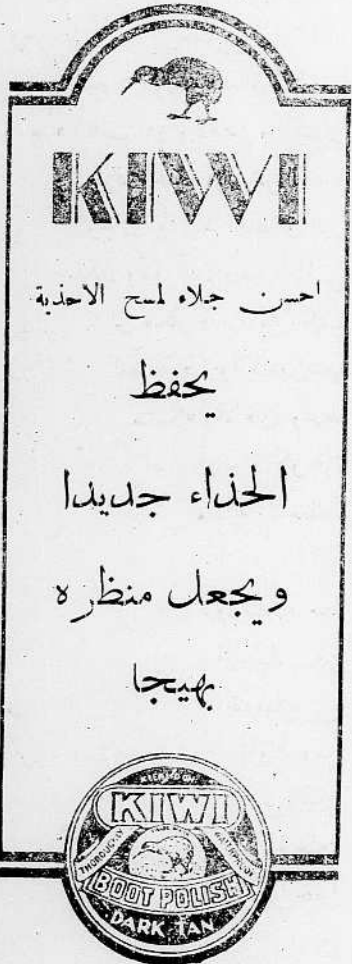 KIWI
احسن جلاء لمسح الاحذية
يحفظ
الحذاء جديدا
ويجعل منظره
بهيجا
KIWI
THOROUGHLY WATERPROOF
BOOT POLISH
DARK TAN